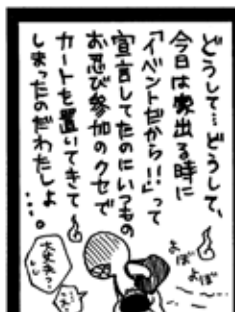 どうして…どうして、
今日は家出る時に
「イベントだから!!」って
宣言してたのにいつもの
お忍び参加のクセで
カートを置いてきて
しまったのだわたしよ
…。
よぼ
よぼ
大丈夫?